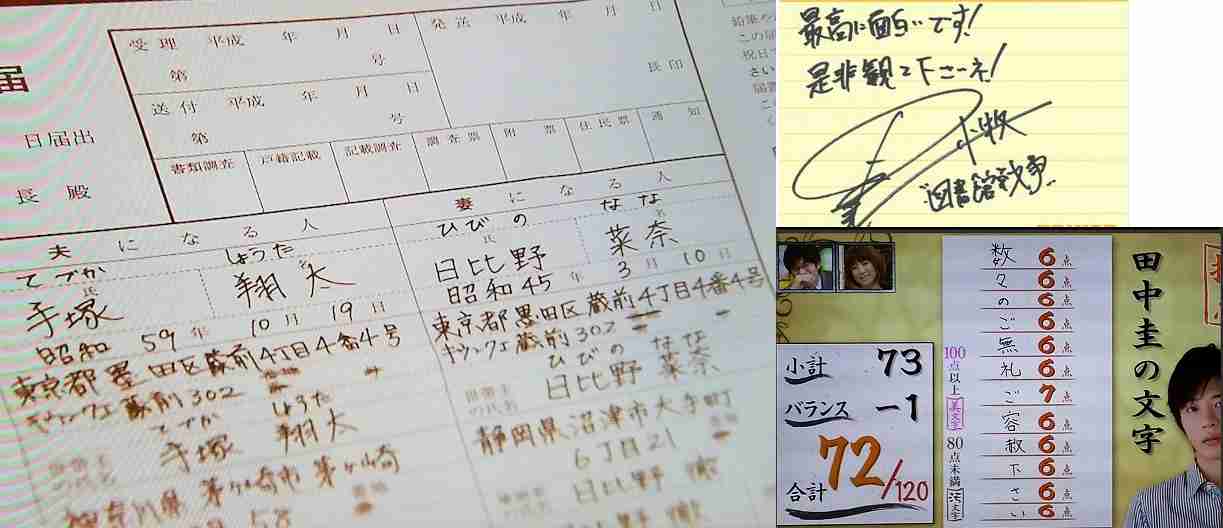 届
日届出
長殿
受理 平成 年 月 日
第 号
送付 平成 年 月 日
第 号
発送 平成 年 月 日
長印
書類調査
戸籍記載
記載調査
調査票
附票
住民票
通知
夫になる人
てづか しょうた
手塚 翔太
昭和 59年 10月 19日
東京都墨田区蔵前4丁目4番4号
蔵前302
てづか しょうた
手塚 翔太
茅ヶ崎市 茅ヶ崎
妻になる人
ひびの なな
氏 名
日比野 菜奈
昭和45年 3月 10日
東京都墨田区蔵前4丁目4番4号
蔵前302
ひびの なな
日比野 菜奈
静岡県沼津市大手町
6丁目21
日比野
鉛筆や
この届
祝日で
さい
届書
この
最高に面白いです!
是非観て下さーネ!
小牧
図書館戦争
田中圭の文字
数 6点
々 6点
の 6点
ご 6点
無 6点
礼 6点
ご 7点
容 6点
赦 6点
下 6点
さ 6点
い 6点
100点以上 美文字
80点未満 汚文字
小計 73
バランス -1
合計 72/120